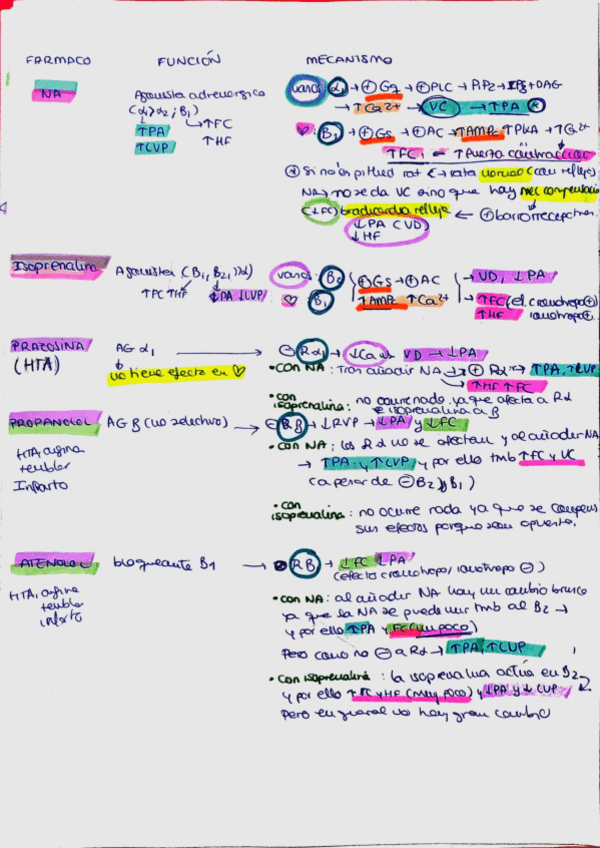 FARMACO FUNCIÓN MECANISMO
NA Agonista adrenérgico vasos: α1 → ⊕Gq → ⊕PLC → PiP2 → IP3 + DAG
(α1>α2; B1) → ↑Ca2+ → VC → ↑PA *
↑PA ↑FC ♡: B1 → ⊕Gs → ⊕AC → ↑AMPc → ↑PKA → ↑Ca2+
↑CVP ↑HF ↑FC ← ↑fuerza contracción
* Si no es pithed rat rata normal (con reflejo)
NA → no se da VC sino que hay mec compensatorio
(↓FC) bradicardia refleja ← ⊕ barorreceptores
↓PA (VD)
↓HF
Isoprenalina Agonista (B1, B2, >>α) vasos: B2 ⊕Gs → ⊕AC → VD, ↓PA
↑FC ↑HF ↓PA ↓CVP ♡: B1 ↑AMPc ↑Ca2+ → ↑FC (ef. cronotropo ⊕)
↑HF ionotropo ⊕
PRAZOSINA AG α1 → ⊖ Rα1 → ↓Ca VD → ↓PA
(HTA) no tiene efecto en ♡ • CON NA: Tras añadir NA → ⊕ Rα → ↑PA, ↑CVP
↑HF ↑FC
• con isoprenalina: no ocurre nada, ya que afecta a Rα
e isoprenalina a β
PROPANOLOL AG B (no selectivo) → ⊖ RB → ↓RVP → ↓PA y ↓FC
HTA, angina • CON NA: los Rα no se afectan y al añadir NA
temblor → ↑PA y ↑CVP y por ello tmb ↑FC y VC
Infarto (a pesar de ⊖ B2 y B1)
• con isoprenalina: no ocurre nada ya que se compensan
sus efectos porque son opuestos.
ATENOLOL bloqueante B1 → RB → ↓FC ↓PA
(efecto cronotropo/ionotropo ⊖)
HTA, angina • CON NA: al añadir NA hay un cambio brusco
temblor ya que la NA se puede unir tmb al B2 →
infarto y por ello ↑PA y FC (un poco)
Pero como no ⊖ a Rα → ↑PA, ↑CVP
• Con isoprenalina: la isoprenalina actúa en B2
y por ello ↑FC y HF (muy poco) y ↓PA y ↓CVP
Pero en general no hay gran cambio